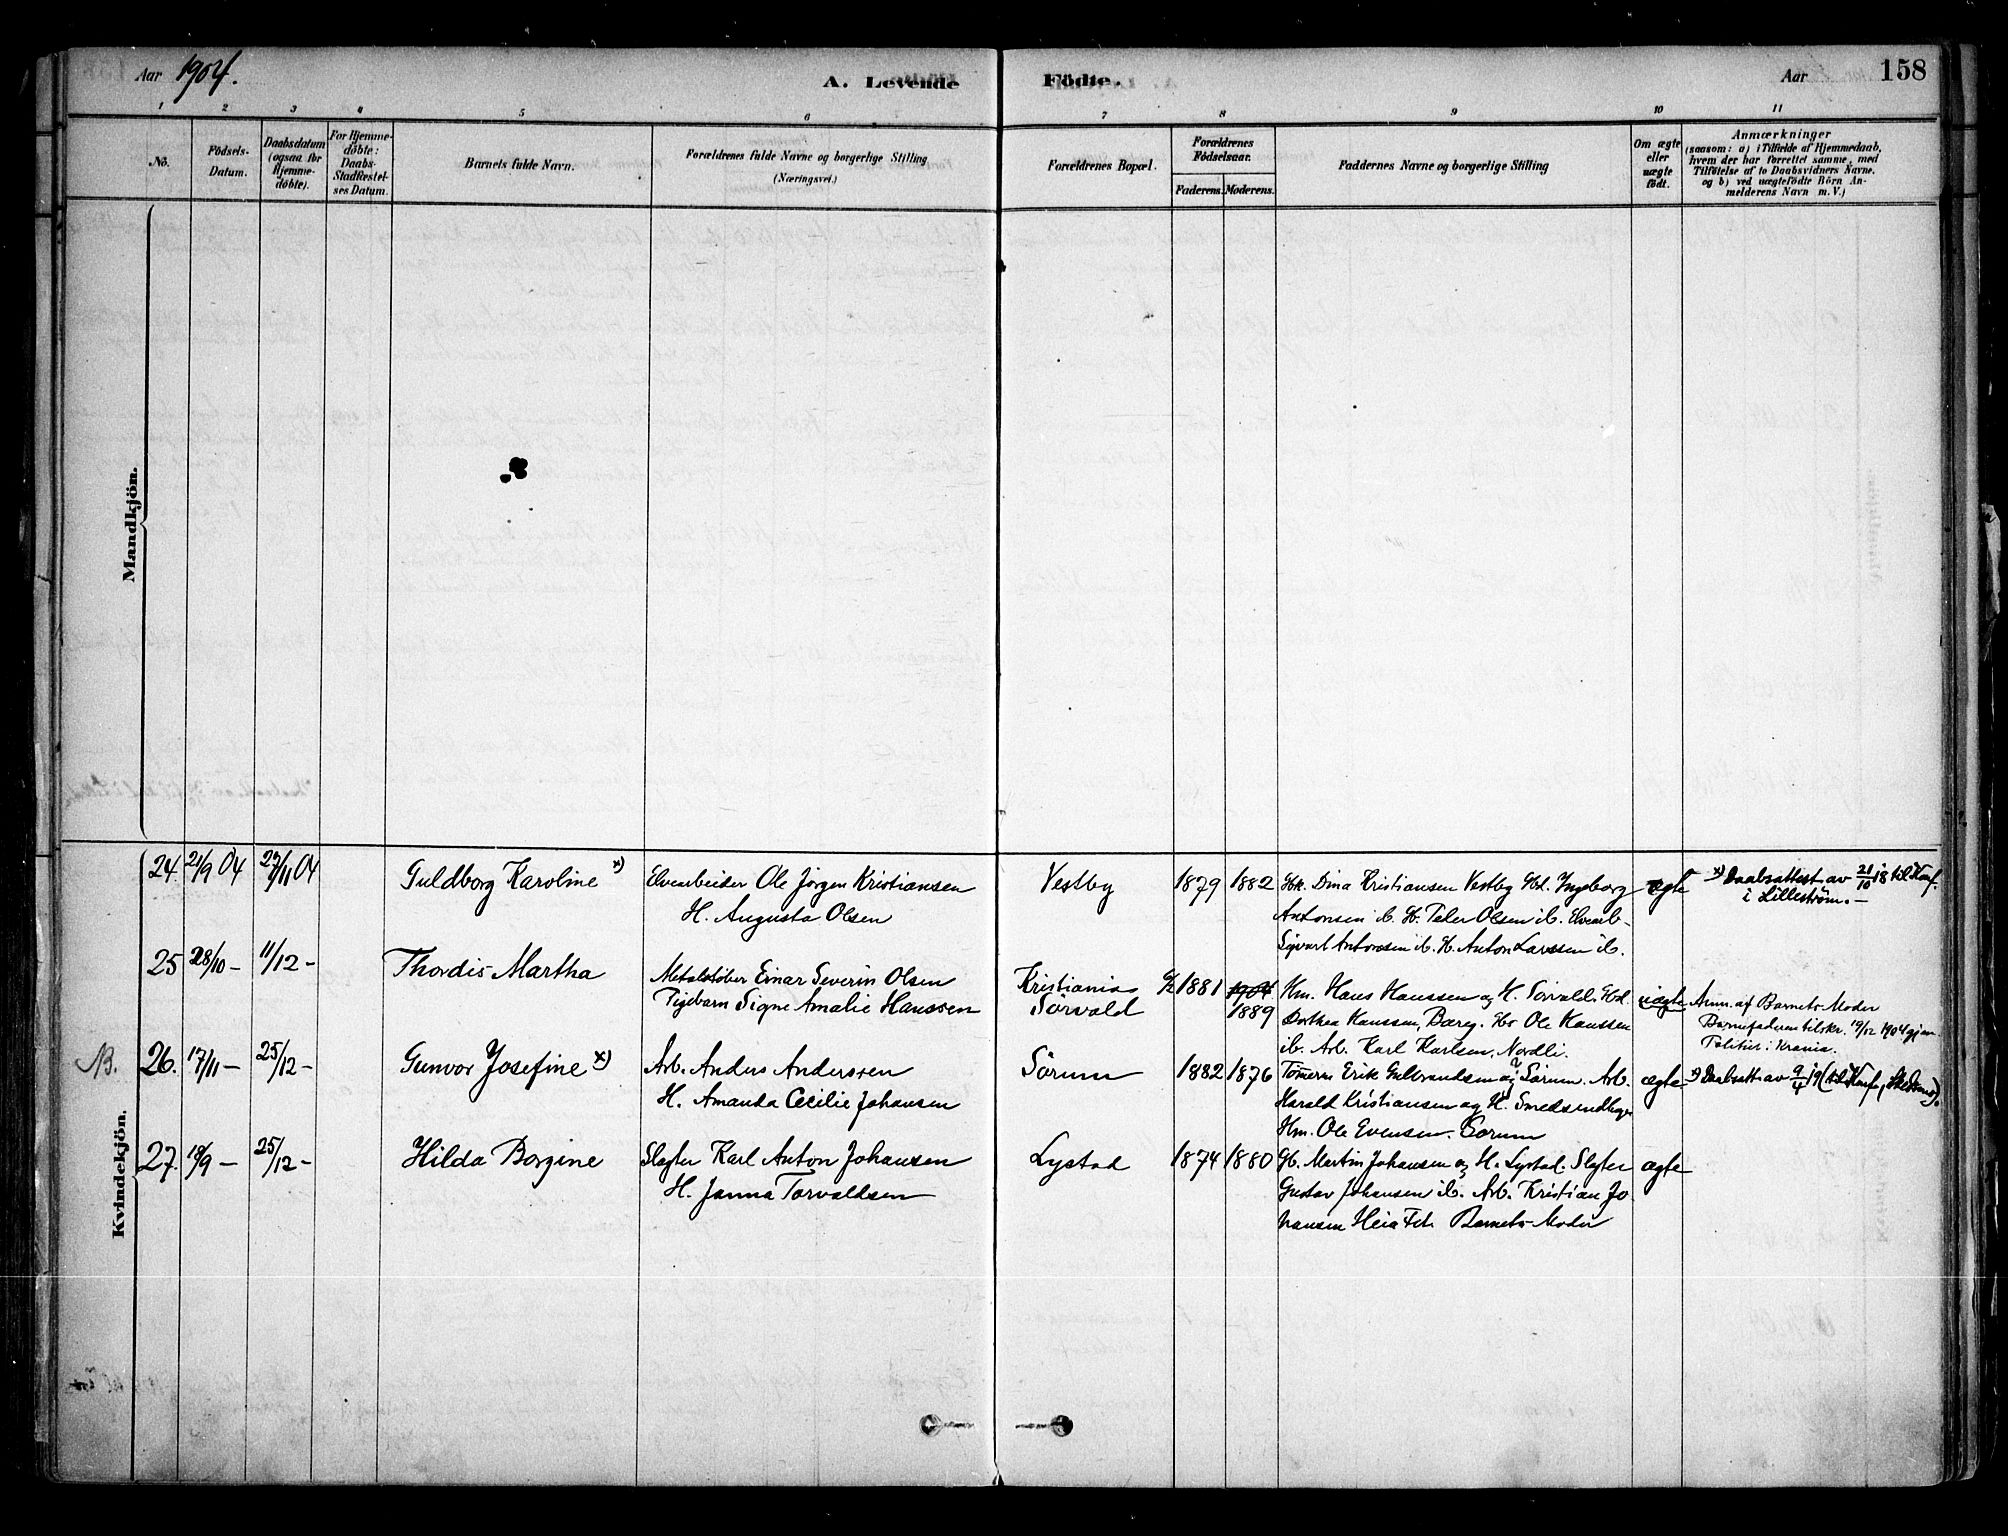 Aar 1904.
A. Levende Födte.
Aar 158
1 2 3 4 5 6 7 8 9 10 11
No.
Födsels-Datum.
Daabsdatum (ogsaa for Hjemme-döbte).
For Hjemme-döbte: Daabs-Stadfæstel-ses Datum.
Barnets fulde Navn.
Forældrenes fulde Navne og borgerlige Stilling (Næringsvei.)
Forældrenes Bopæl.
Forældrenes Födselsaar.
Faderens. Moderens.
Faddernes Navne og borgerlige Stilling
Om ægte eller uægte födt.
Anmærkninger
(saasom: a) i Tilfælde af Hjemmedaab,
hvem der har forrettet samme, med
Tilföielse af to Daabsvidners Navne,
og b) ved uægtefödte Börn An-
melderens Navn m. V.)
Mandkjön.
Kvindekjön.
24. 21/9 04 27/11 04 Guldborg Karoline x)
Elvearbeider Ole Jörgen Kristiansen
H. Augusta Olsen
Vestby 1879 1882
Hk. Dina Kristiansen Vestby Hd. Ingeborg
Antonsen ib. H. Peder Olsen ib. Elvearb.
Sigvart Antonsen ib. H. Anton Larssen ib.
ægte
x) Daabsattest av 21/10 18 til Konf.
i Lilleström.-
25 28/10 - 11/12 - Thordis Martha
Metalstöber Einar Severin Olsen
Pigebarn Signe Amalie Hanssen
Kristiania
Sörvald
1881 1904
1889
Hm. Hans Hanssen og H. Sörvald. Hd.
Dorthea Hanssen, Bærg. Ole Hanssen
ib. Arb. Karl Karlsen, Nordli.
uægte
Anm. af Barnets Moder
Barnefaderen tilskr. 19/12 1904 gjen.
Politiet i Krania.
N. 26. 17/11 - 25/12 - Gunvor Josefine x)
Arb. Anders Anderssen
H. Amanda Cecilie Johansen
Sörum 1882 1876
Tömerm Erik Gulbrandsen og H. Sörum. Arb.
Harald Kristiansen og H. Smedsendhagen
Hm. Ole Evensen. Sörum
ægte
x) Daabsatt av 9/4 19 (til Konf, Skedsmo).
27. 18/9 - 25/12 - Hilda Borgine
Slagter Karl Anton Johansen
H. Janna Torvaldsen
Lystad 1874 1880
Gb. Martin Johansen og H. Lystad. Slagter
Gustav Johansen ib. Arb. Kristian Jo
hansen Heia Fet. Barnets Moder
ægte